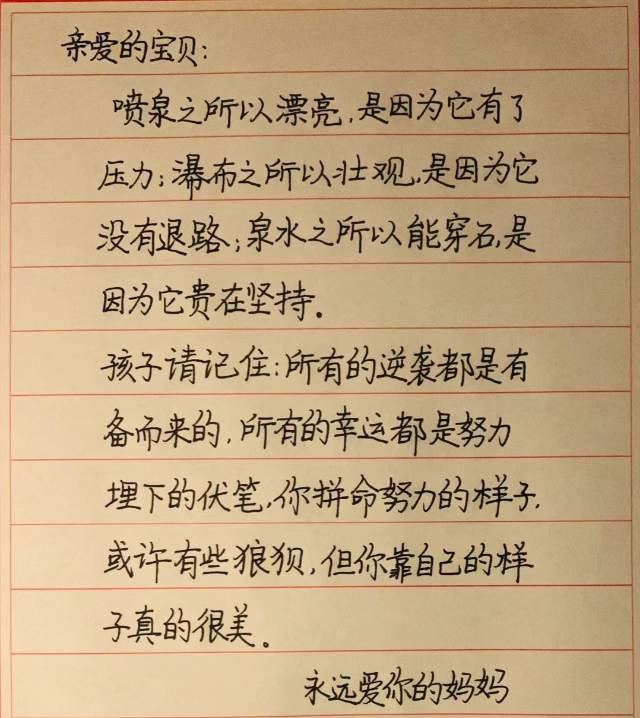 亲爱的宝贝：
喷泉之所以漂亮，是因为它有了
压力；瀑布之所以壮观，是因为它
没有退路；泉水之所以能穿石，是
因为它贵在坚持。
孩子请记住：所有的逆袭都是有
备而来的，所有的幸运都是努力
埋下的伏笔，你拼命努力的样子，
或许有些狼狈，但你靠自己的样
子真的很美。
永远爱你的妈妈